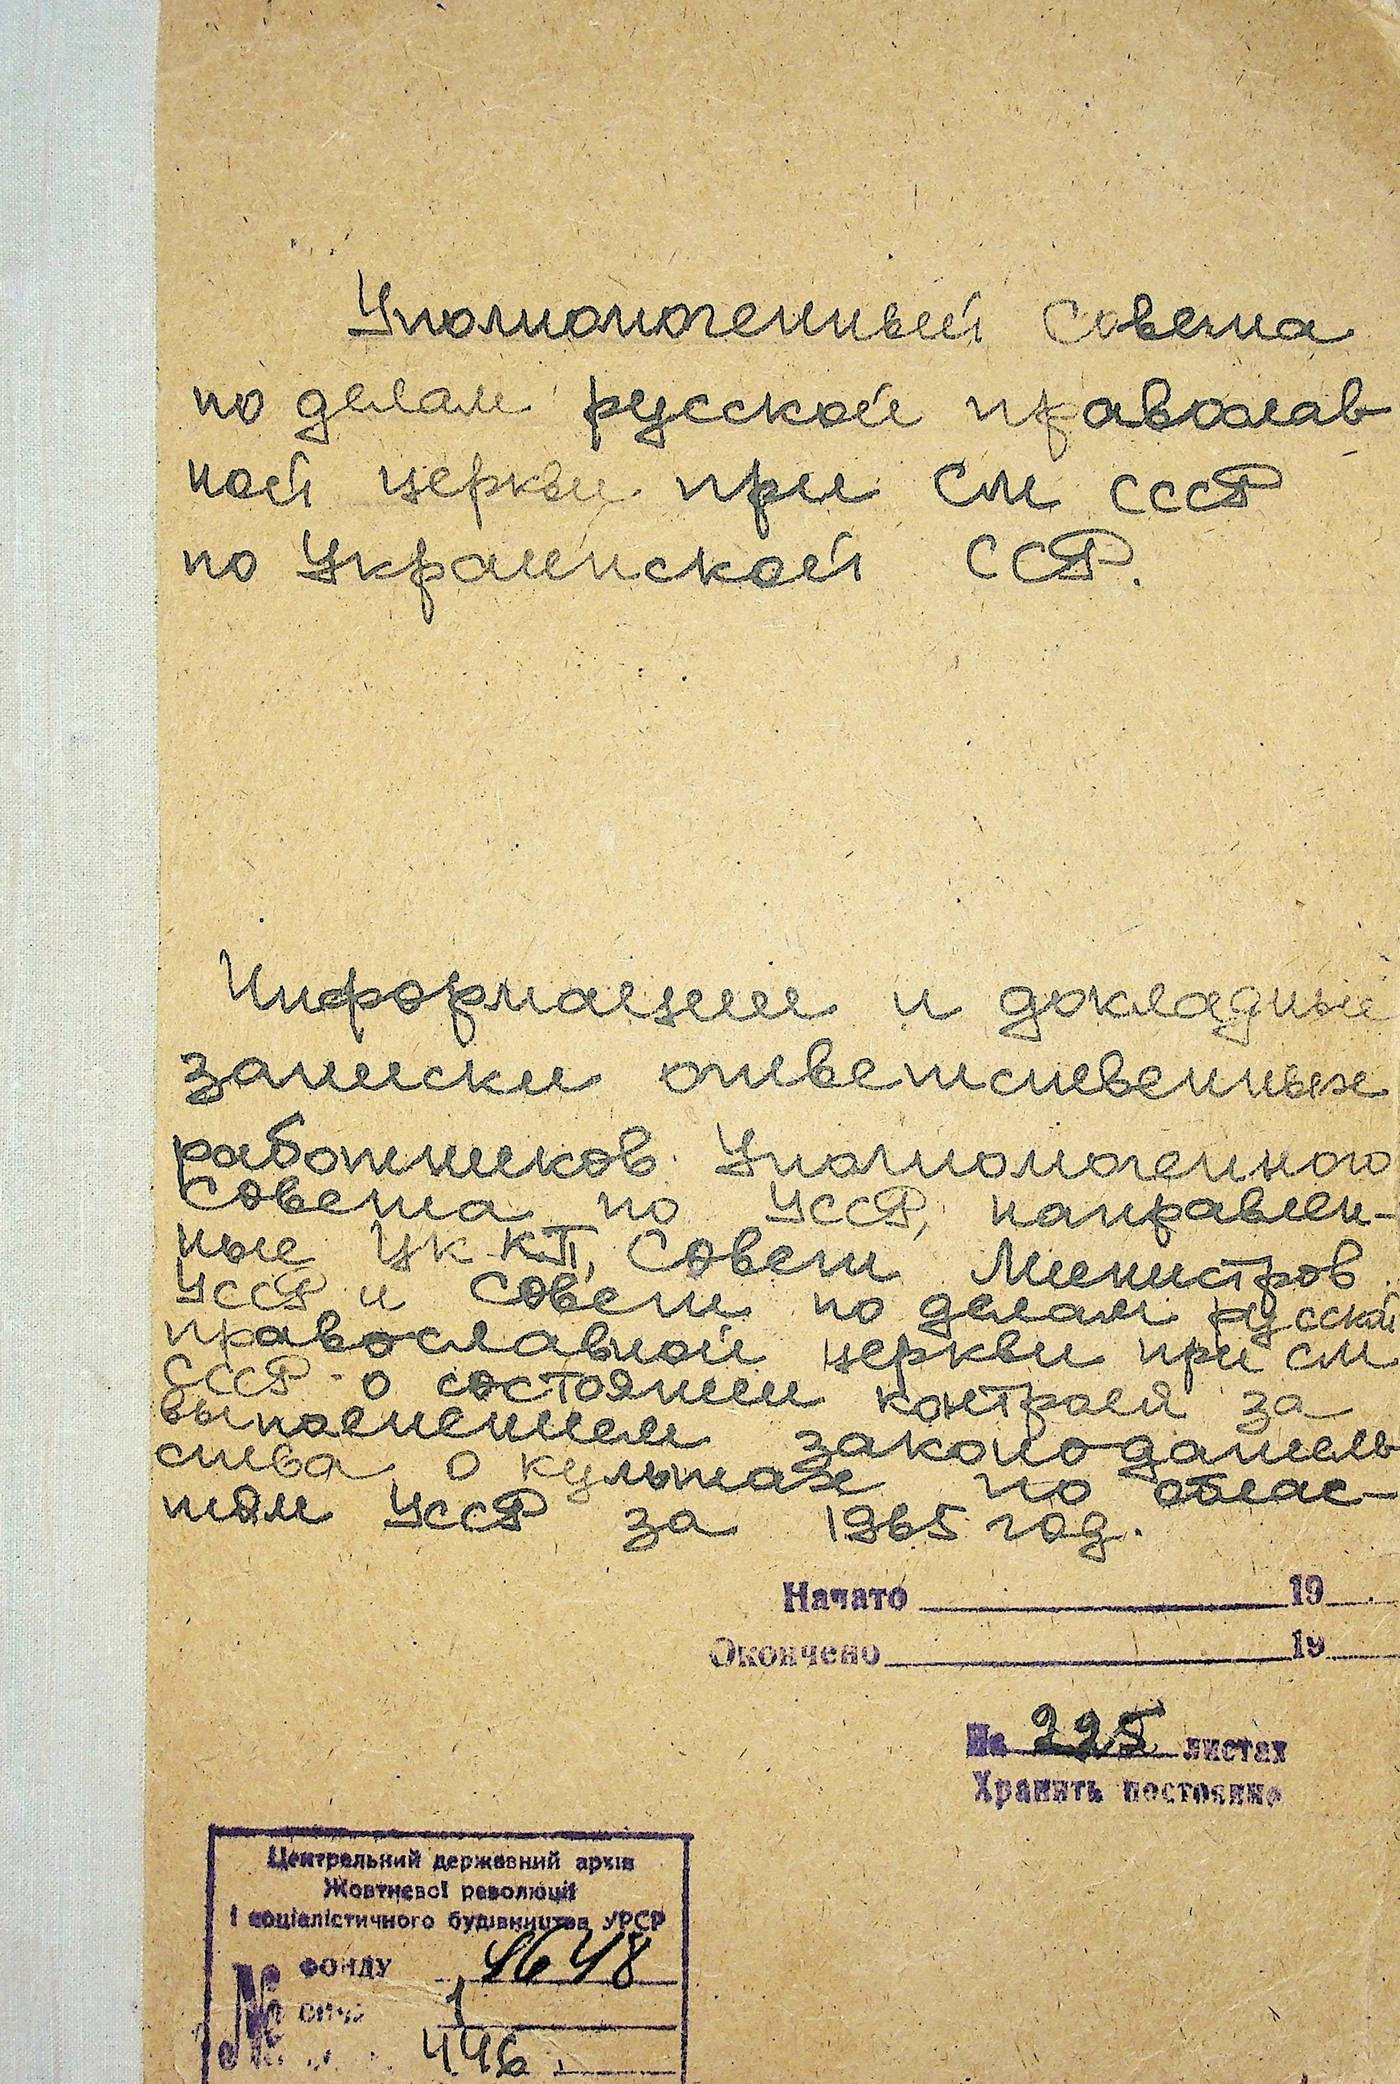 Уполномоченный Совета
по делам русской православ-
ной церкви при СМ СССР
по Украинской ССР.
Информации и докладные
записки ответственных
работников Уполномоченного
Совета по УССР, направлен-
ные ЦК КП, Совет Министров
УССР и Совет по делам русской
православной церкви при СМ
СССР о состоянии контроля за
выполнением законодатель
ства о культах по облас-
тям УССР за 1965 год.
Начато 19
Окончено 19
На 225 листах
Хранить постоянно
Центральний державний архів
Жовтневої революції
і соціалістичного будівництва УРСР
№ ФОНДУ 4648
опису 1
446